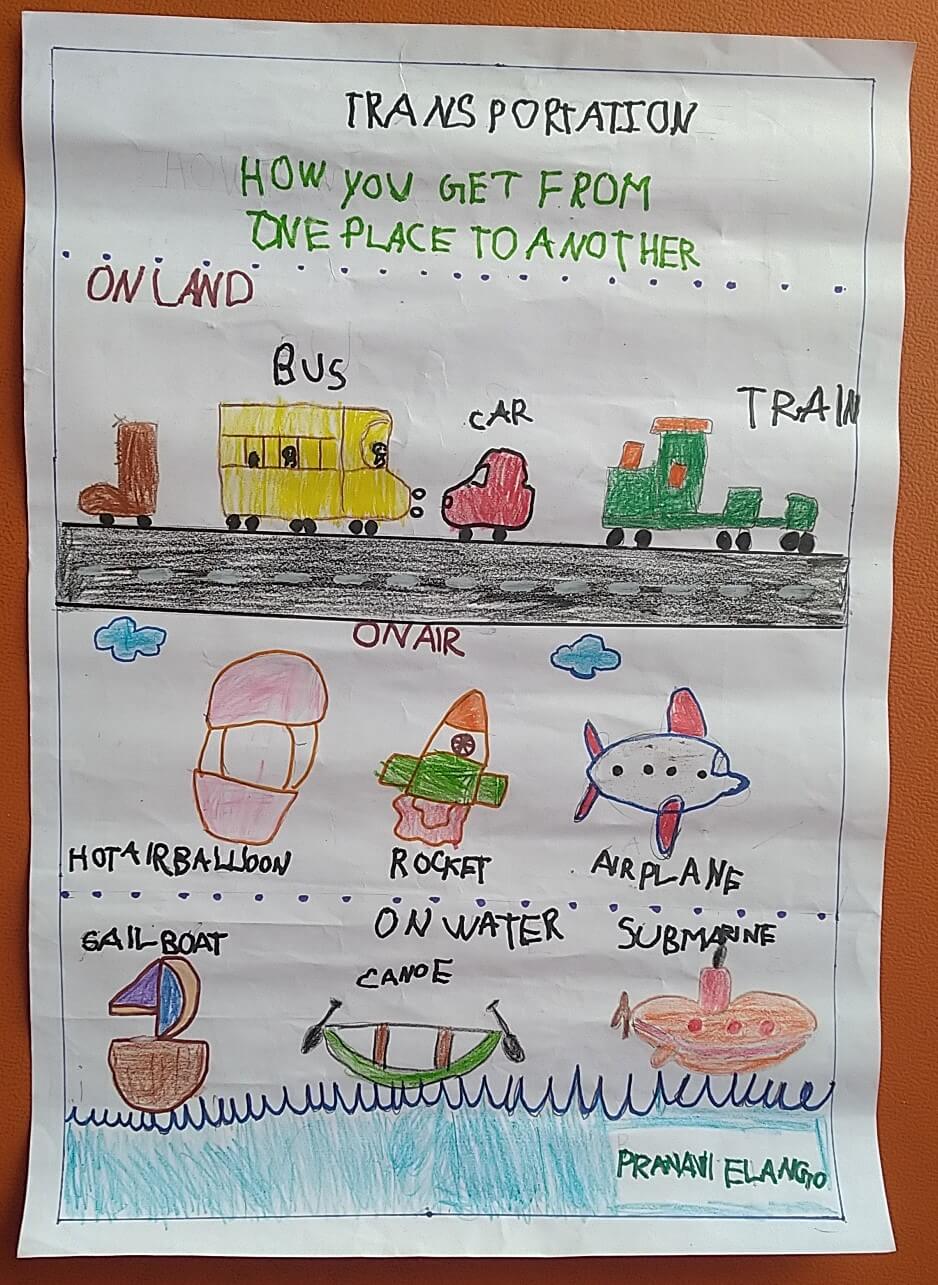 TRANSPORTATION
HOW YOU GET FROM
ONE PLACE TO ANOTHER
ON LAND
BUS
CAR
TRAIN
ON AIR
HOT AIR BALLOON
ROCKET
AIRPLANE
ON WATER
SAIL BOAT
CANOE
SUBMARINE
PRANAVI ELANGO